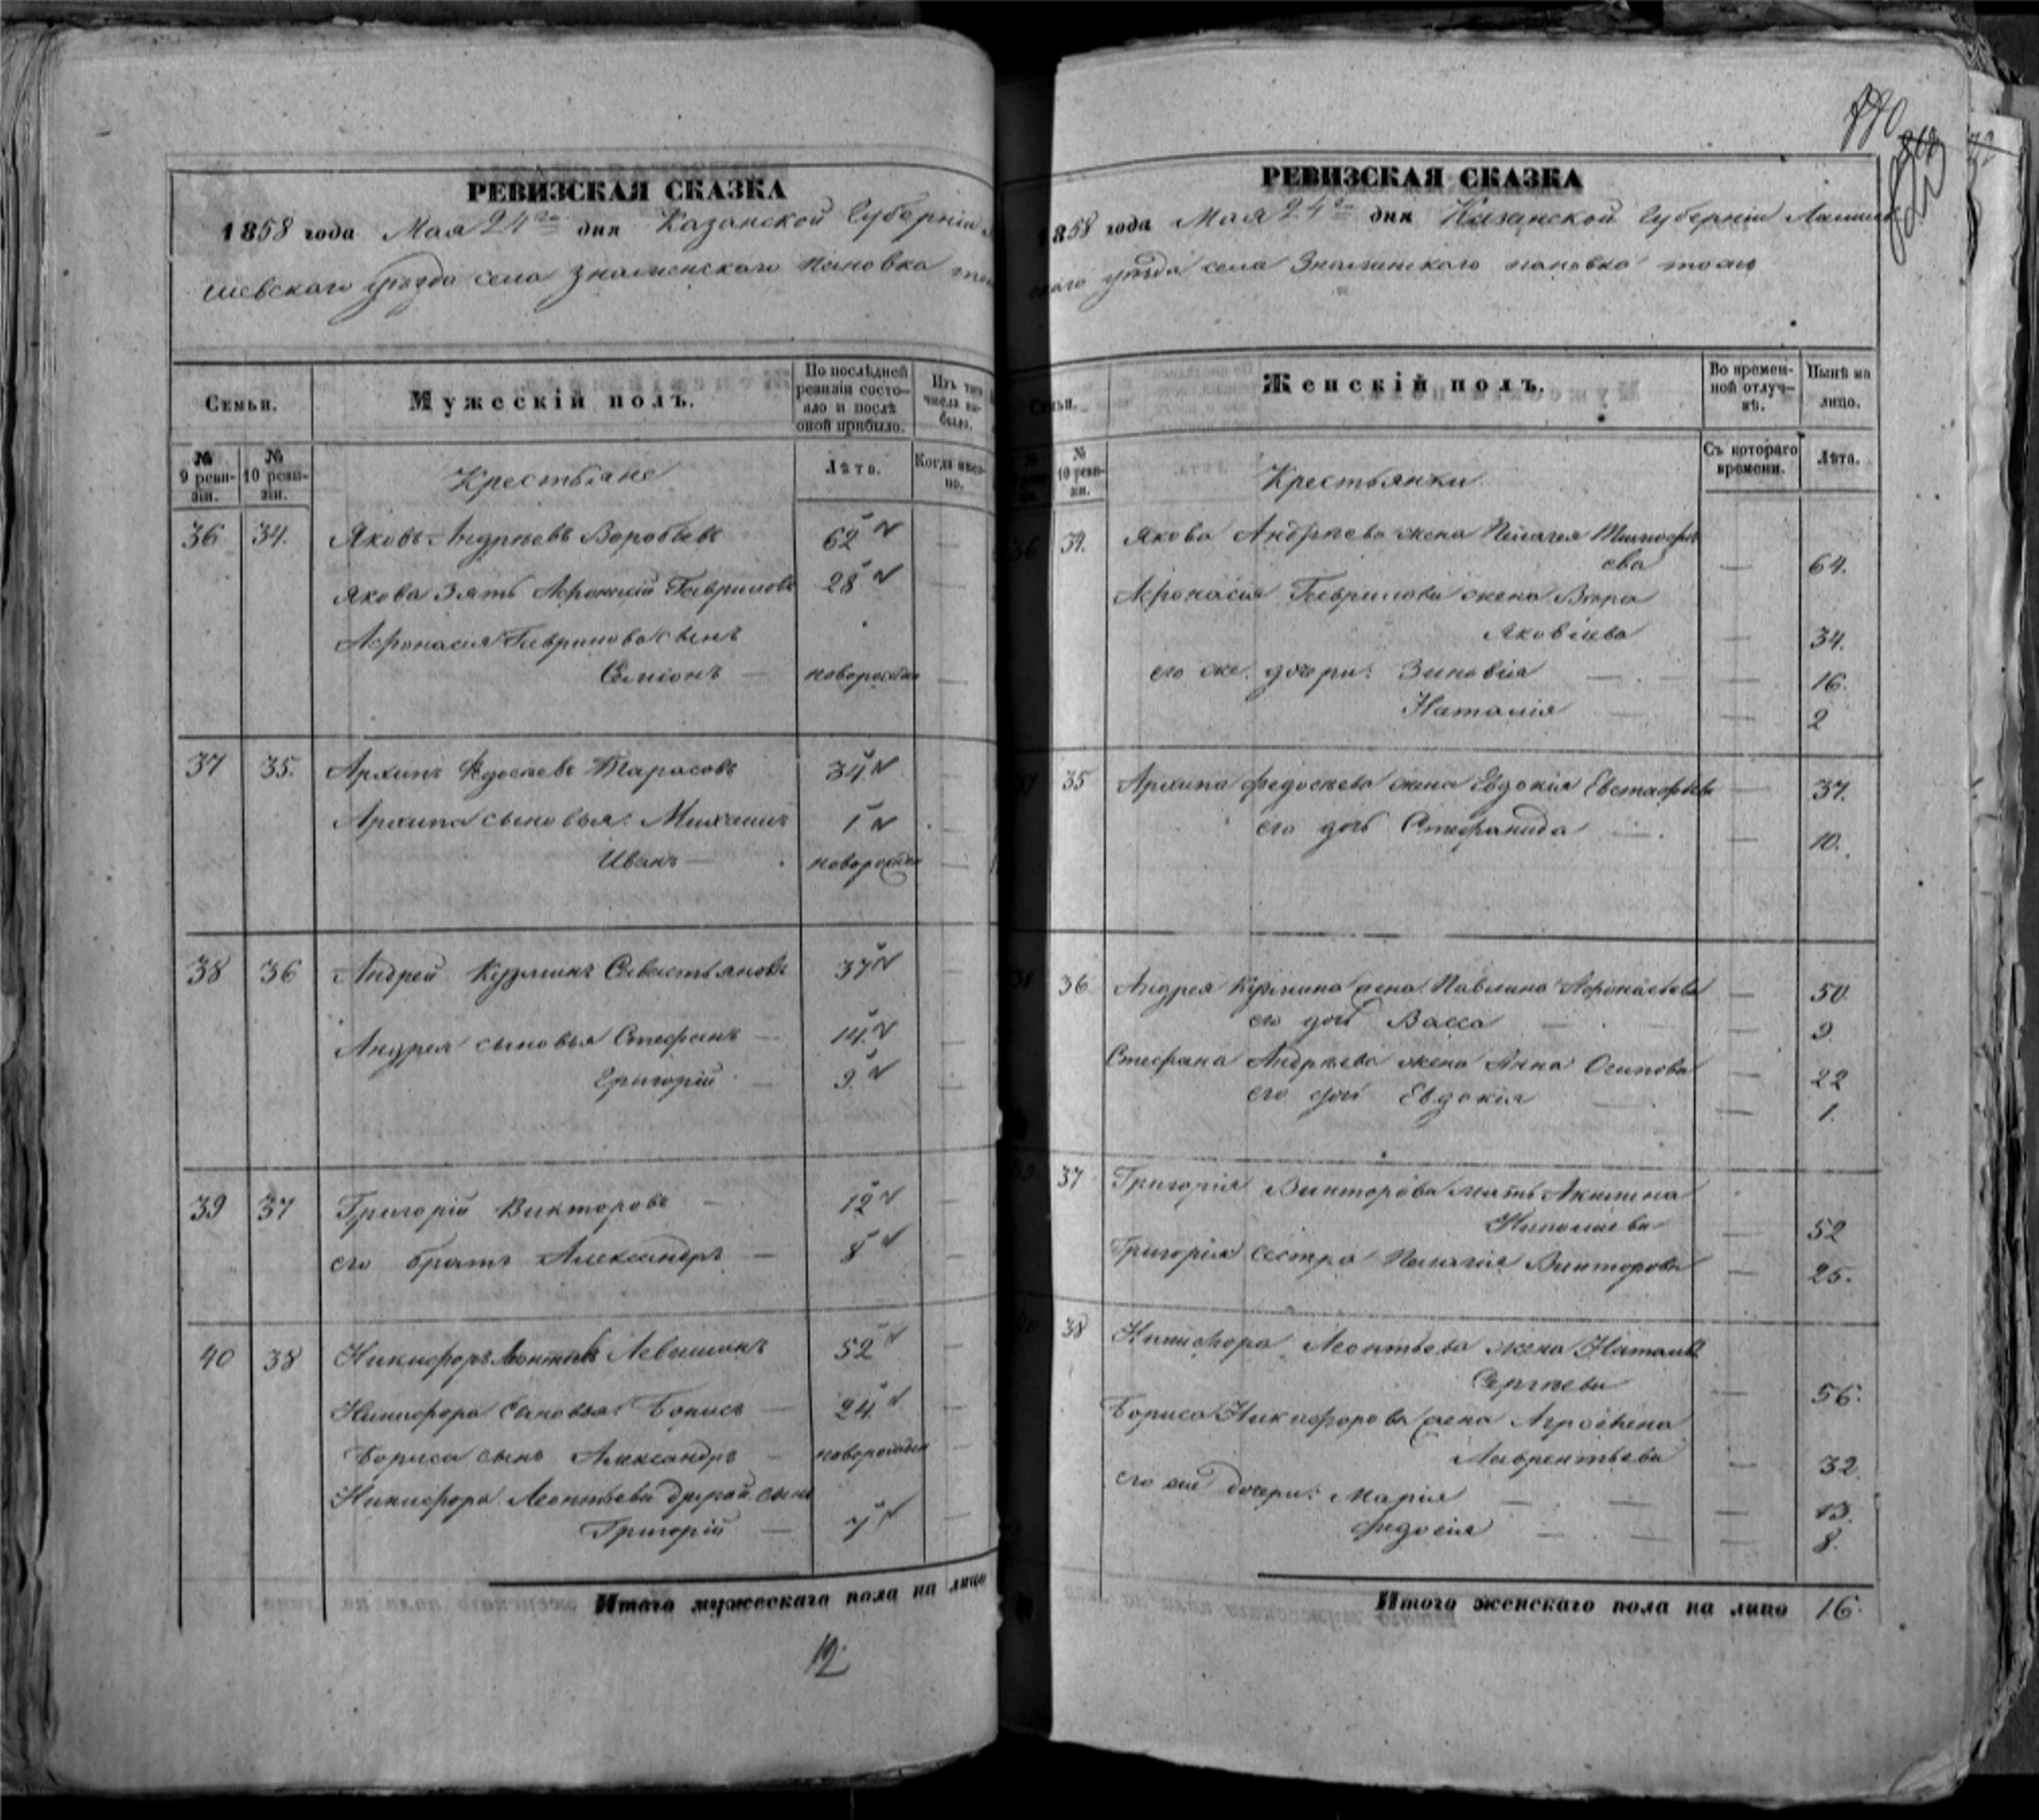 РЕВИЗСКАЯ СКАЗКА
1858 года Мая 24го дня Казанской Губерніи
шевскаго уѣзда села Знаменскаго Пановка
Семьи.
Мужескій полъ.
По послѣдней ревизіи состо-
яло и послѣ
оной прибыло.
Изъ того
числа вы-
было.
№
9 реви-
зіи.
№
10 реви-
зіи.
Крестьяне
Лѣта.
Когда имен-
но.
36 34. Яковъ Андреевъ Воробьевъ 62
Якова Зять Афонасій Гавриловъ 28
Афонасія Гаврилова сынъ
Семіонъ — новорожден —
37 35. Архипъ Федосеевъ Тарасовъ 34
Архипа сыновья: Михаилъ 1
Иванъ — новорожден —
38 36 Андрей Кузминъ Севастьяновъ 37
Андрея сыновья Стефанъ — 14.
Григорій — 9.
39 37 Григорій Викторовъ — 12
его братъ Александръ — 8
40 38 Никифоръ Леонтьевъ Левашинъ 52
Никифора Сыновья: Борисъ — 24.
Бориса сынъ Александръ — новорожден —
Никифора Леонтьева другой сынъ
Григорій — 7
Итого мужескаго пола на лицо
12
РЕВИЗСКАЯ СКАЗКА
1858 года Мая 24го дня Казанской Губерніи Лаишев
скаго уѣзда села Знаменскаго Пановка тожъ
Семьи.
Женскій полъ.
Во времен-
ной отлуч-
кѣ.
Нынѣ на
лицо.
№
10 реви-
зіи.
Крестьянки
Съ котораго
времени.
Лѣта.
36 34. Якова Андреева жена Пелагея Тимофе
ева — 64.
Афонасія Гаврилова жена Вѣра
Яковлева — 34.
его же дочери: Зиновія — 16.
Наталія — 2
37 35 Архипа Федосеева жена Евдокія Евстафьева — 37.
его дочь Стефанида — 10.
38 36 Андрея Кузмина жена Павлина Афонасьева — 50
его дочь Васса — 9.
Стефана Андреева жена Анна Осипова — 22
его дочь Евдокія — 1.
39 37 Григорія Викторова мать Акилина
Николаева — 52
Григорія сестра Пелагія Викторова — 25.
40 38 Никифора Леонтьева жена Наталья
Сергеева — 56.
Бориса Никифорова жена Агрофена
Лаврентьева — 32
его же дочери: Марія — 13.
Федосія — 8.
Итого женскаго пола на лицо 16.